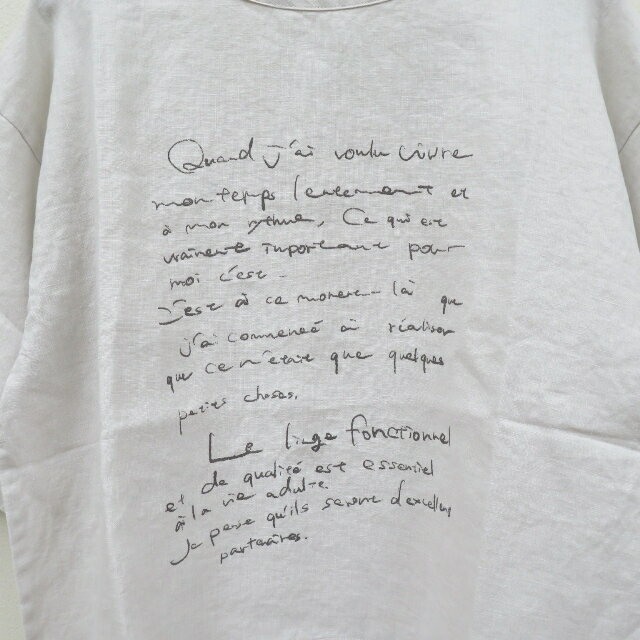 Quand j'ai voulu vivre
mon temps lentement et
à mon rythme, Ce qui est
vraiment important pour
moi c'est..
C'est à ce moment là que
j'ai commencé à réaliser
que ce n'était que quelques
petites choses.
Le linge fonctionnel
et de qualité est essentiel
à la vie adulte.
Je pense qu'ils seront d'excellents
partenaires.